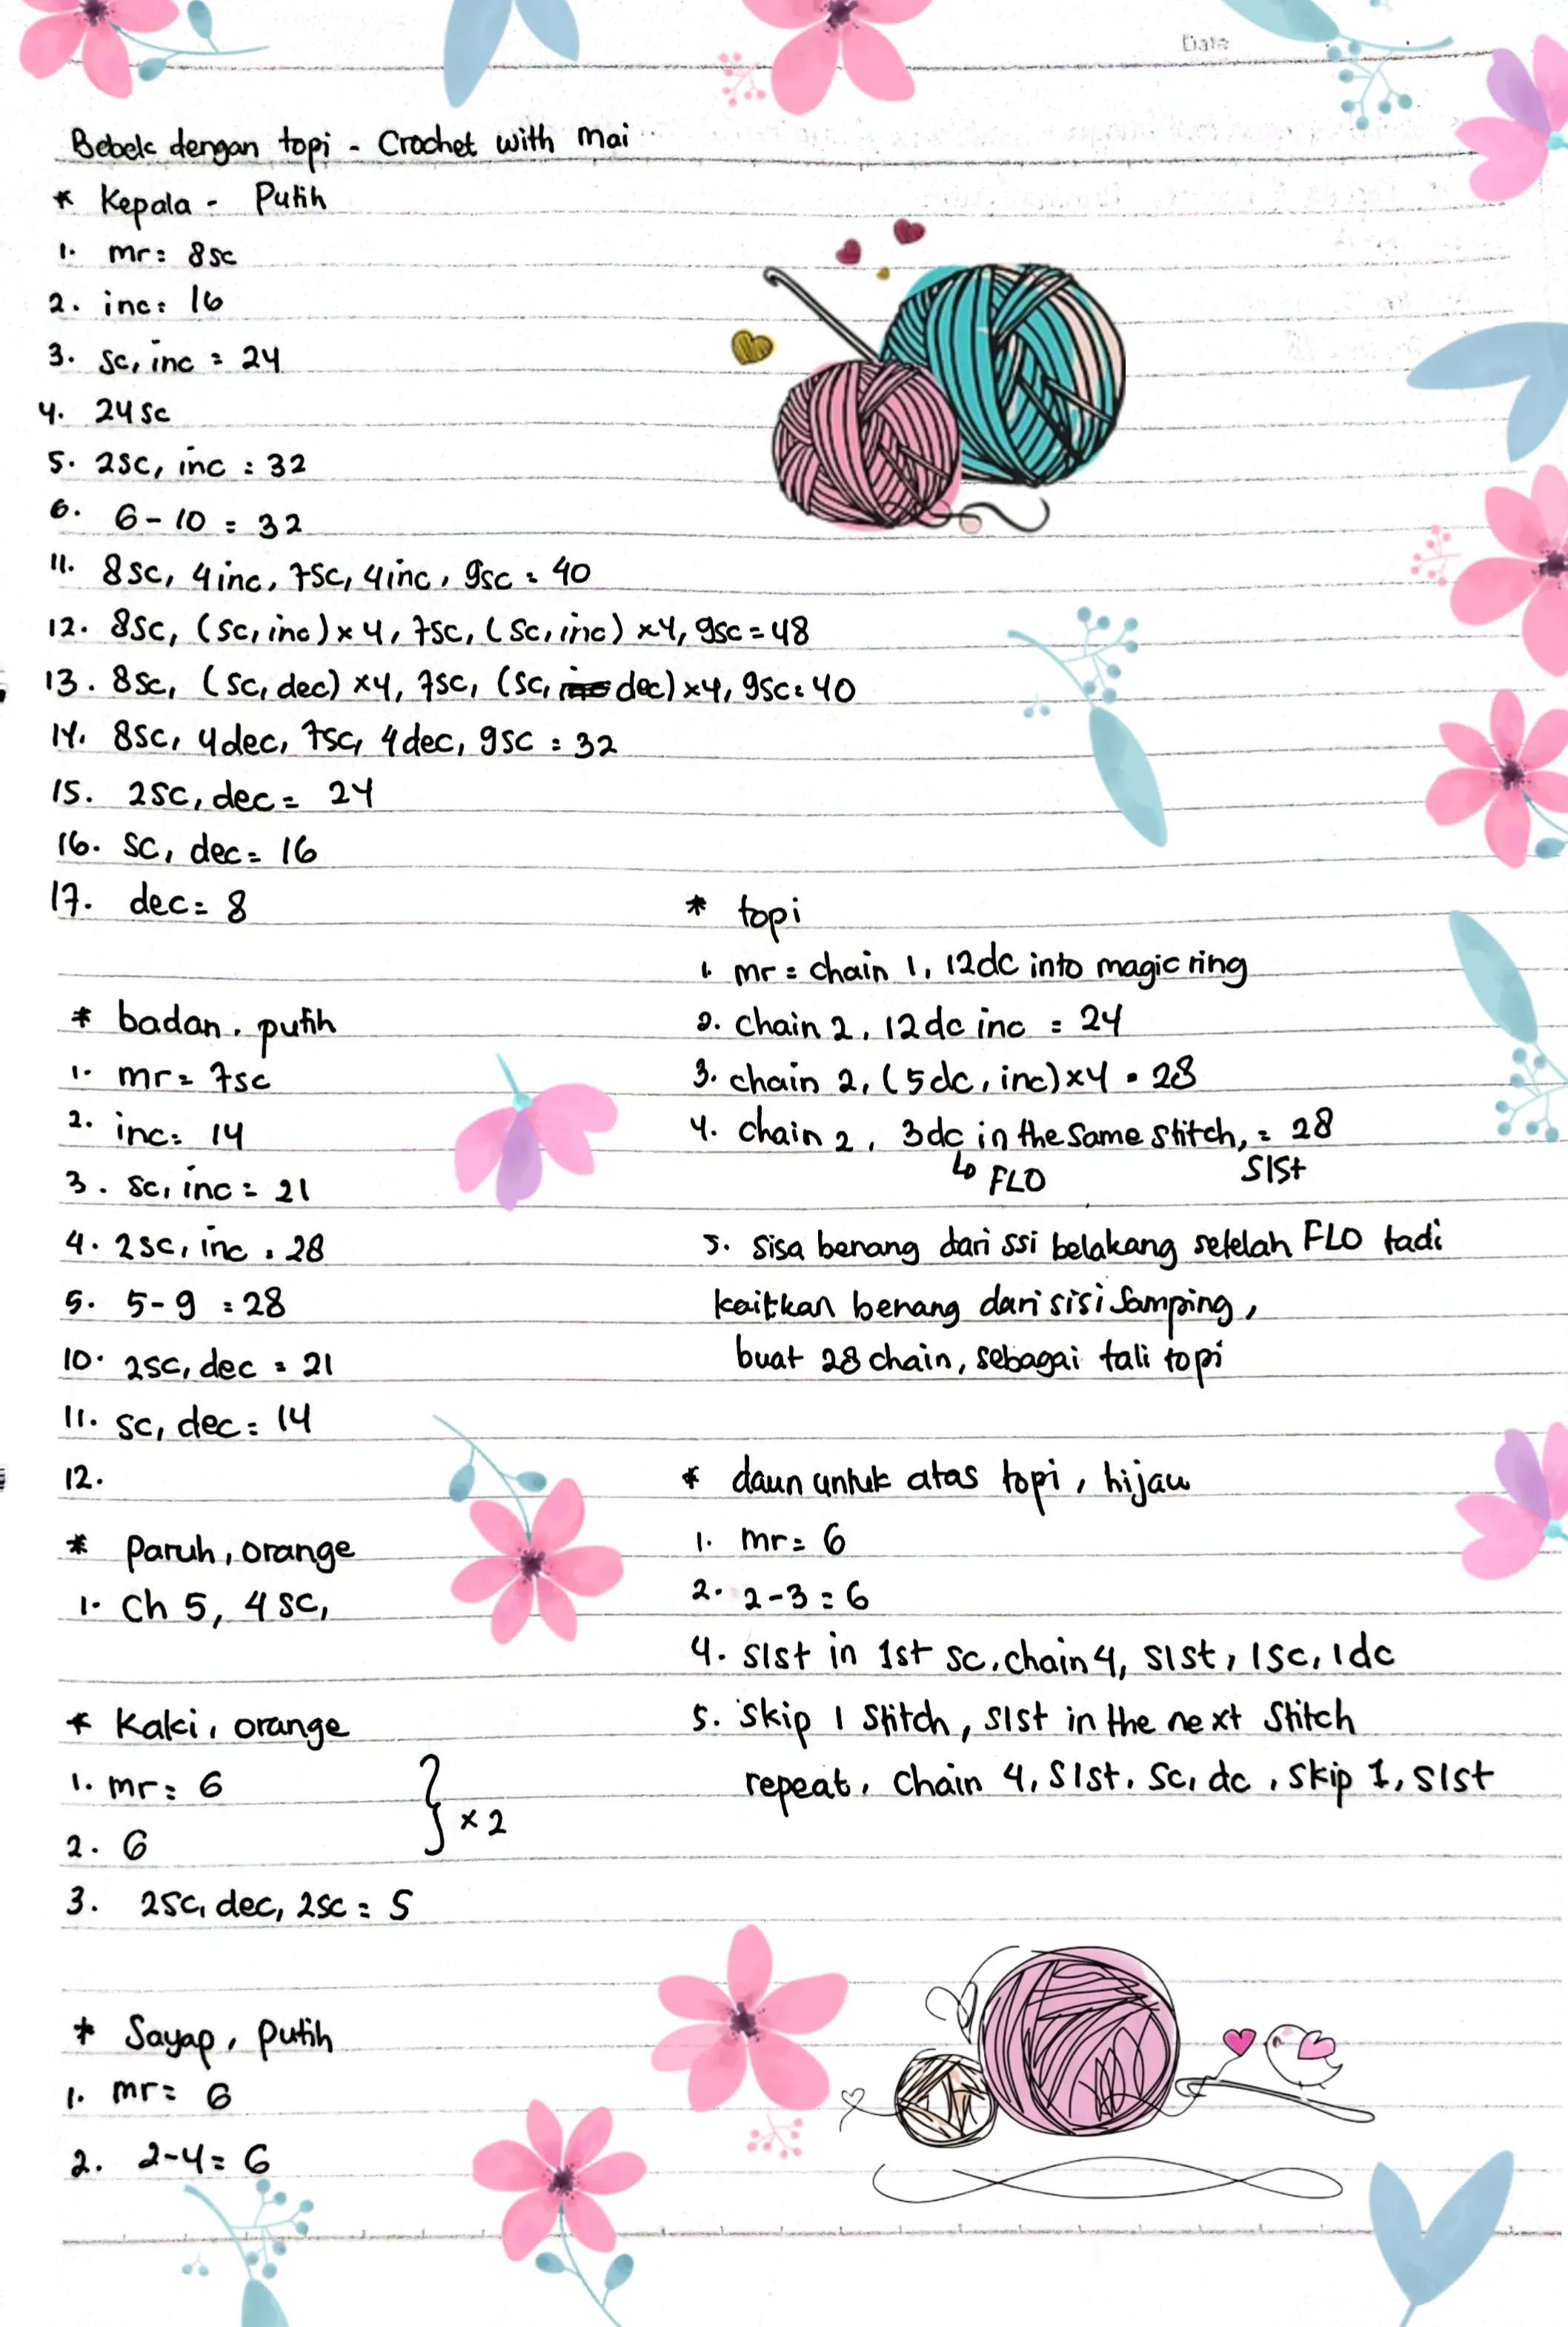 Date
Bebek dengan topi - Crochet with mai
* Kepala - Putih
1. mr: 8sc
2. inc: 16
3. sc, inc = 24
4. 24sc
5. 2sc, inc : 32
6. 6-10 = 32
11. 8sc, 4inc, 7sc, 4inc, 9sc = 40
12. 8sc, (sc, inc) x 4, 7sc, (sc, inc) x4, 9sc = 48
13. 8sc, (sc, dec) x4, 7sc, (sc, dec) x4, 9sc = 40
14. 8sc, 4dec, 7sc, 4dec, 9sc = 32
15. 2sc, dec = 24
16. sc, dec = 16
17. dec = 8
* badan, putih
1. mr = 7sc
2. inc: 14
3. sc, inc = 21
4. 2sc, inc = 28
5. 5-9 = 28
10. 2sc, dec = 21
11. sc, dec = 14
12.
* Paruh, orange
1. Ch 5, 4 sc,
* Kaki, orange
1. mr = 6
2. 6
} x 2
3. 2sc, dec, 2sc = 5
* Sayap, putih
1. mr = 6
2. 2-4 = 6
* topi
1. mr = chain 1, 12dc into magic ring
2. chain 2, 12dc inc = 24
3. chain 2, (5dc, inc) x4 = 28
4. chain 2, 3dc in the same stitch, = 28
↳ FLO slst
5. sisa benang dari ssi belakang setelah FLO tadi
kaitkan benang dari sisi samping,
buat 28 chain, sebagai tali topi
* daun untuk atas topi, hijau
1. mr = 6
2. 2-3 = 6
4. slst in 1st sc, chain 4, slst, 1sc, 1dc
5. skip 1 stitch, slst in the next stitch
repeat, chain 4, slst, sc, dc, skip 1, slst